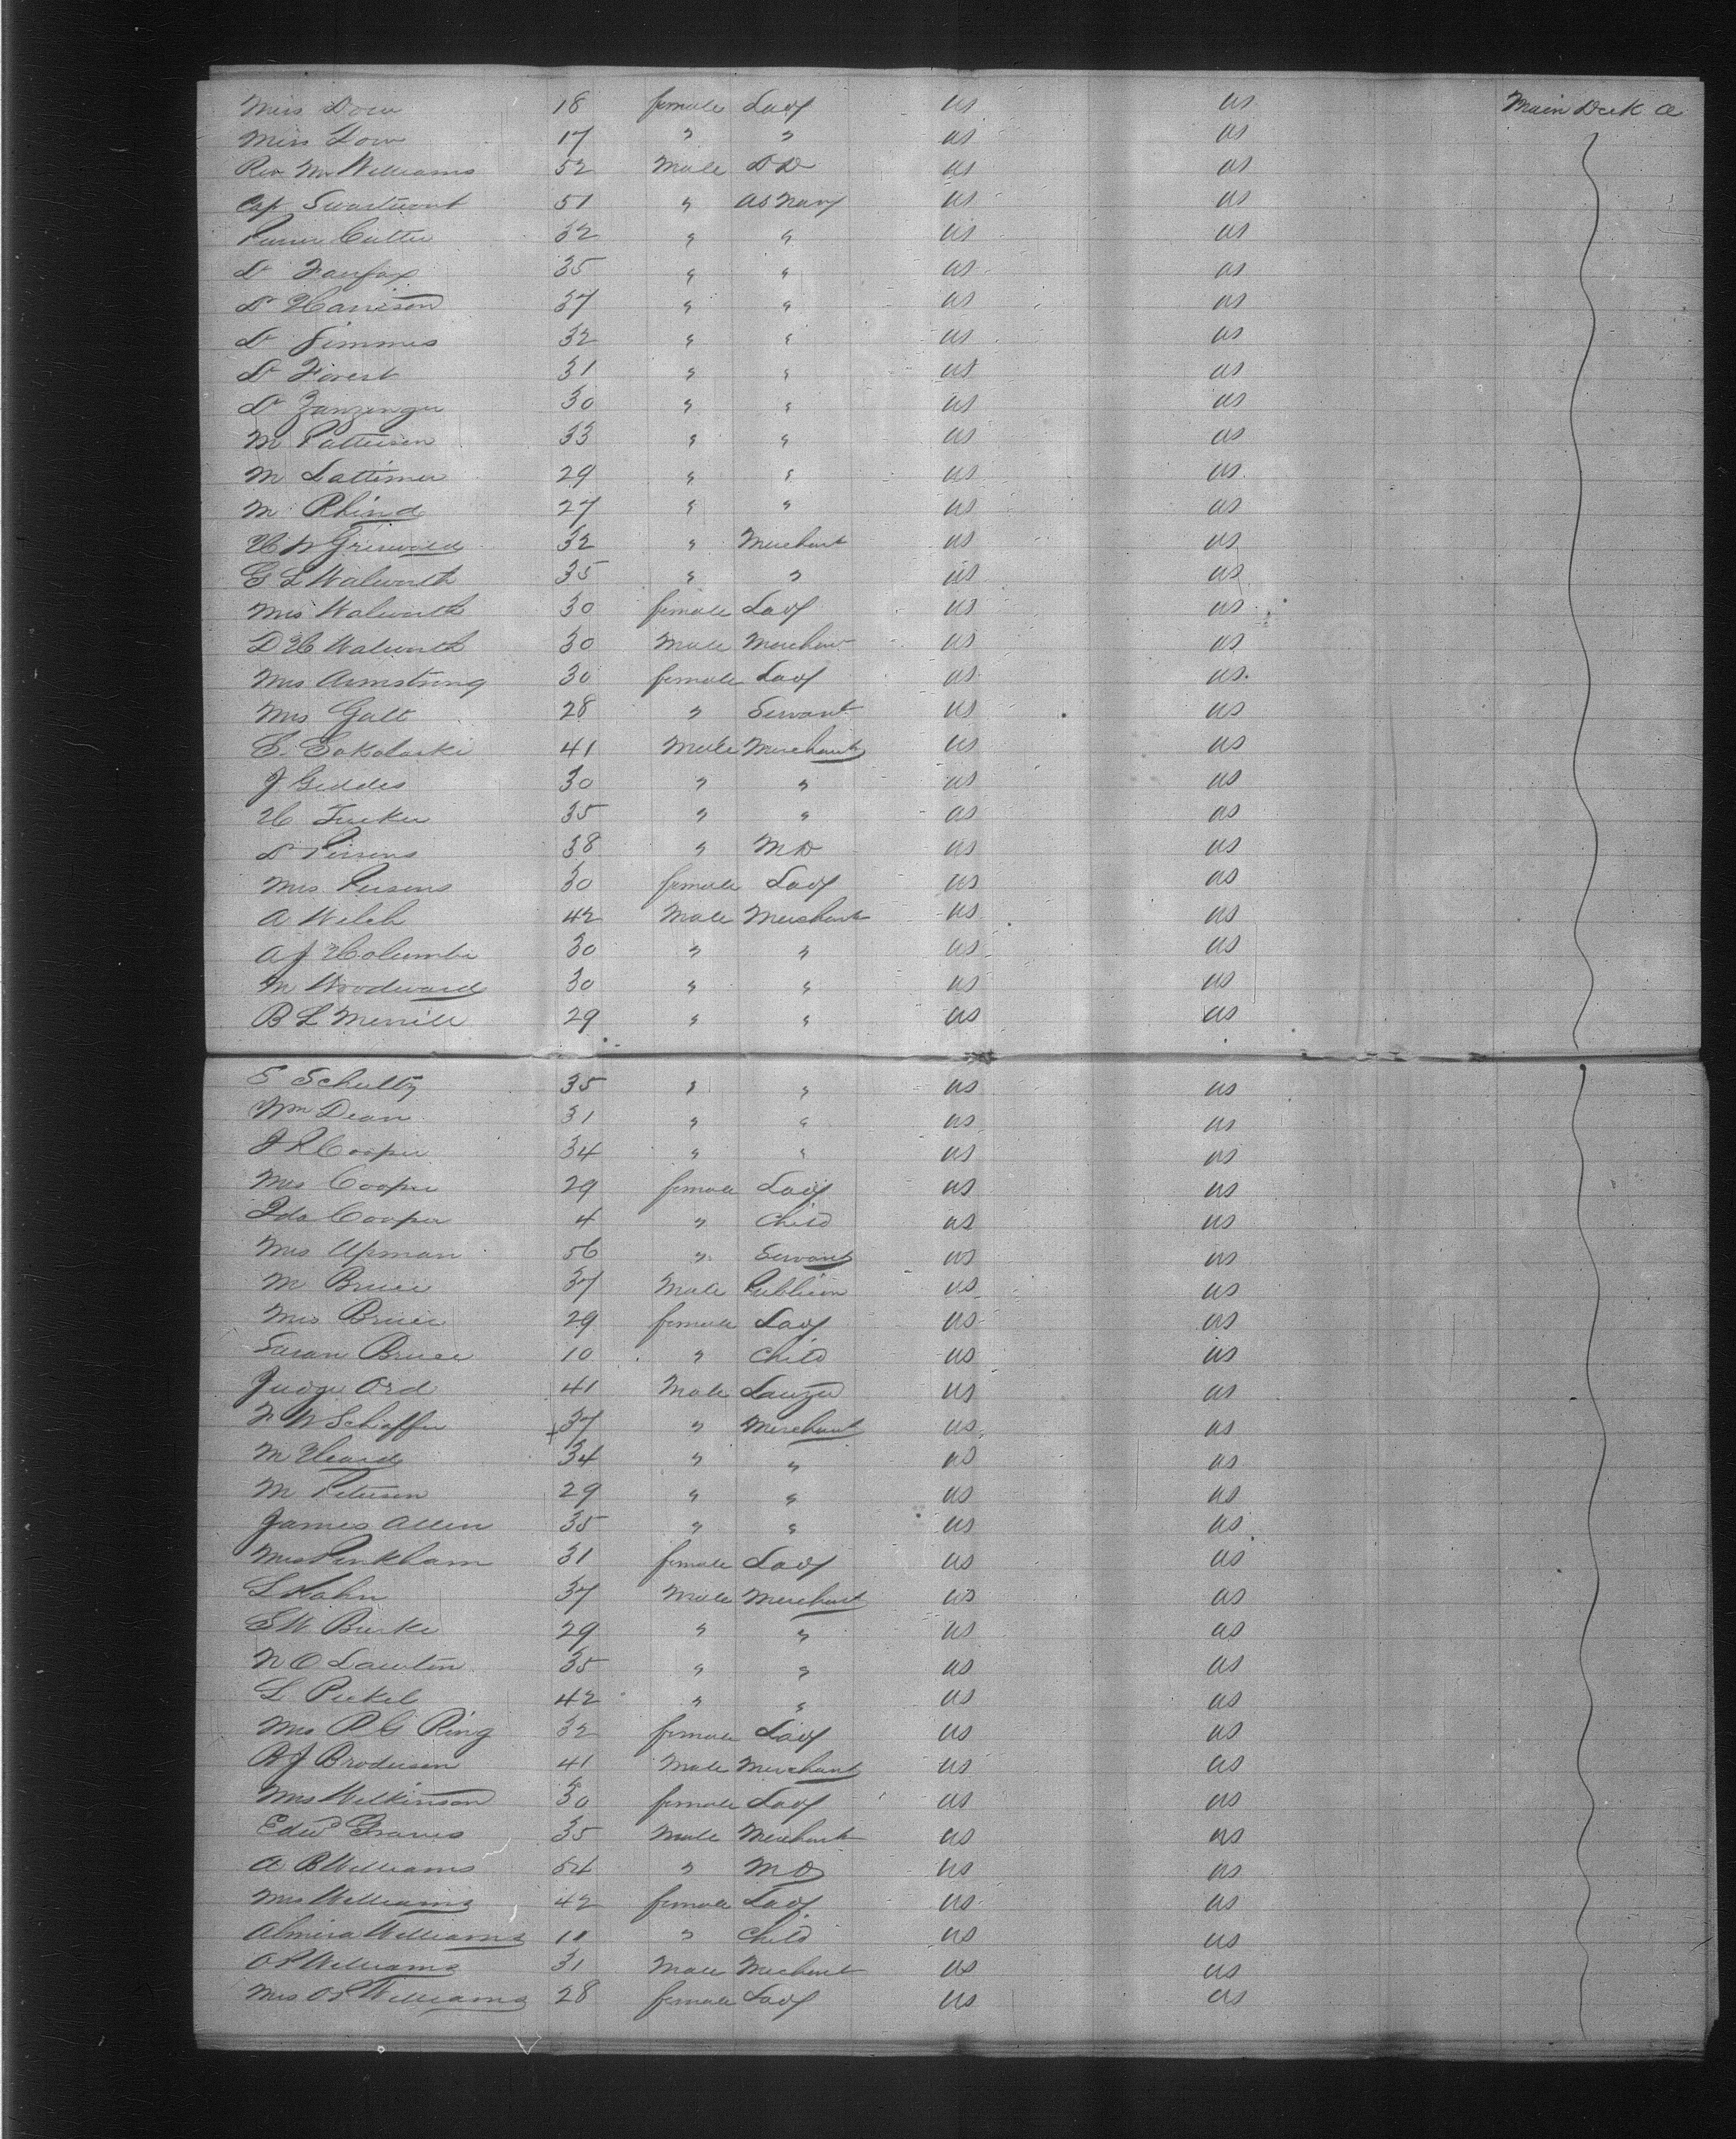 Miss Dow 18 female Lady us us Main Deck a
Miss Low 17 " " us us
Rev Mr Williams 52 Male DD us us
Cap Swartwout 51 " us Navy us us
Purser Cutter 32 " " us us
Dr Fairfax 35 " " us us
Dr Harrison 37 " " us us
Dr Simmes 32 " " us us
Dr Forest 31 " " us us
Dr Zanzenger 30 " " us us
Mr Patterson 33 " " us us
Mr Lattimer 29 " " us us
Mr Rhind 27 " " us us
H W Griswold 32 " Merchant us us
C L Walworth 35 " " us us
Mrs Walworth 30 female Lady us us
D H Walworth 30 Male Merchan us us
Mrs Armstrong 30 female Lady us us
Mrs Galt 28 " Servant us us
S. Sokolaski 41 Male Merchant us us
J Geddes 30 " " us us
H Tucker 35 " " us us
Dr Persons 38 " MD us us
Mrs Persons 30 female Lady us us
A Welch 42 Male Merchant us us
A J Holumbe 30 " " us us
Mr Woodward 30 " " us us
B L Merrill 29 " " us us
S Schultz 35 " " us us
Wm Dean 31 " " us us
J R Cooper 34 " " us us
Mrs Cooper 29 female Lady us us
Ida Cooper 4 " Child us us
Mrs Upman 56 " Servant us us
Mr Bruce 37 Male Publican us us
Mrs Bruce 29 female Lady us us
Saran Bruce 10 " Child us us
Judge Ord 41 Male Lawyer us us
F W Schaffer 37 " Merchant us us
Mr Heard 34 " " us us
Mr Peterson 29 " " us us
James Allen 35 " " us us
Mrs Pinkham 31 female Lady us us
L Hahn 37 Male Merchant us us
E W Burke 29 " " us us
N C Lawton 35 " " us us
L Pickel 42 " " us us
Mrs R G Ring 32 female Lady us us
A J Brodersen 41 Male Merchant us us
Mrs Wilkinson 30 female Lady us us
Edwd Graves 35 Male Merchant us us
A B Williams 54 " MD us us
Mrs Williams 42 female Lady us us
Almira Williams 11 " Child us us
O P Williams 31 Male Mechant us us
Mrs O P Williams 28 female Lady us us